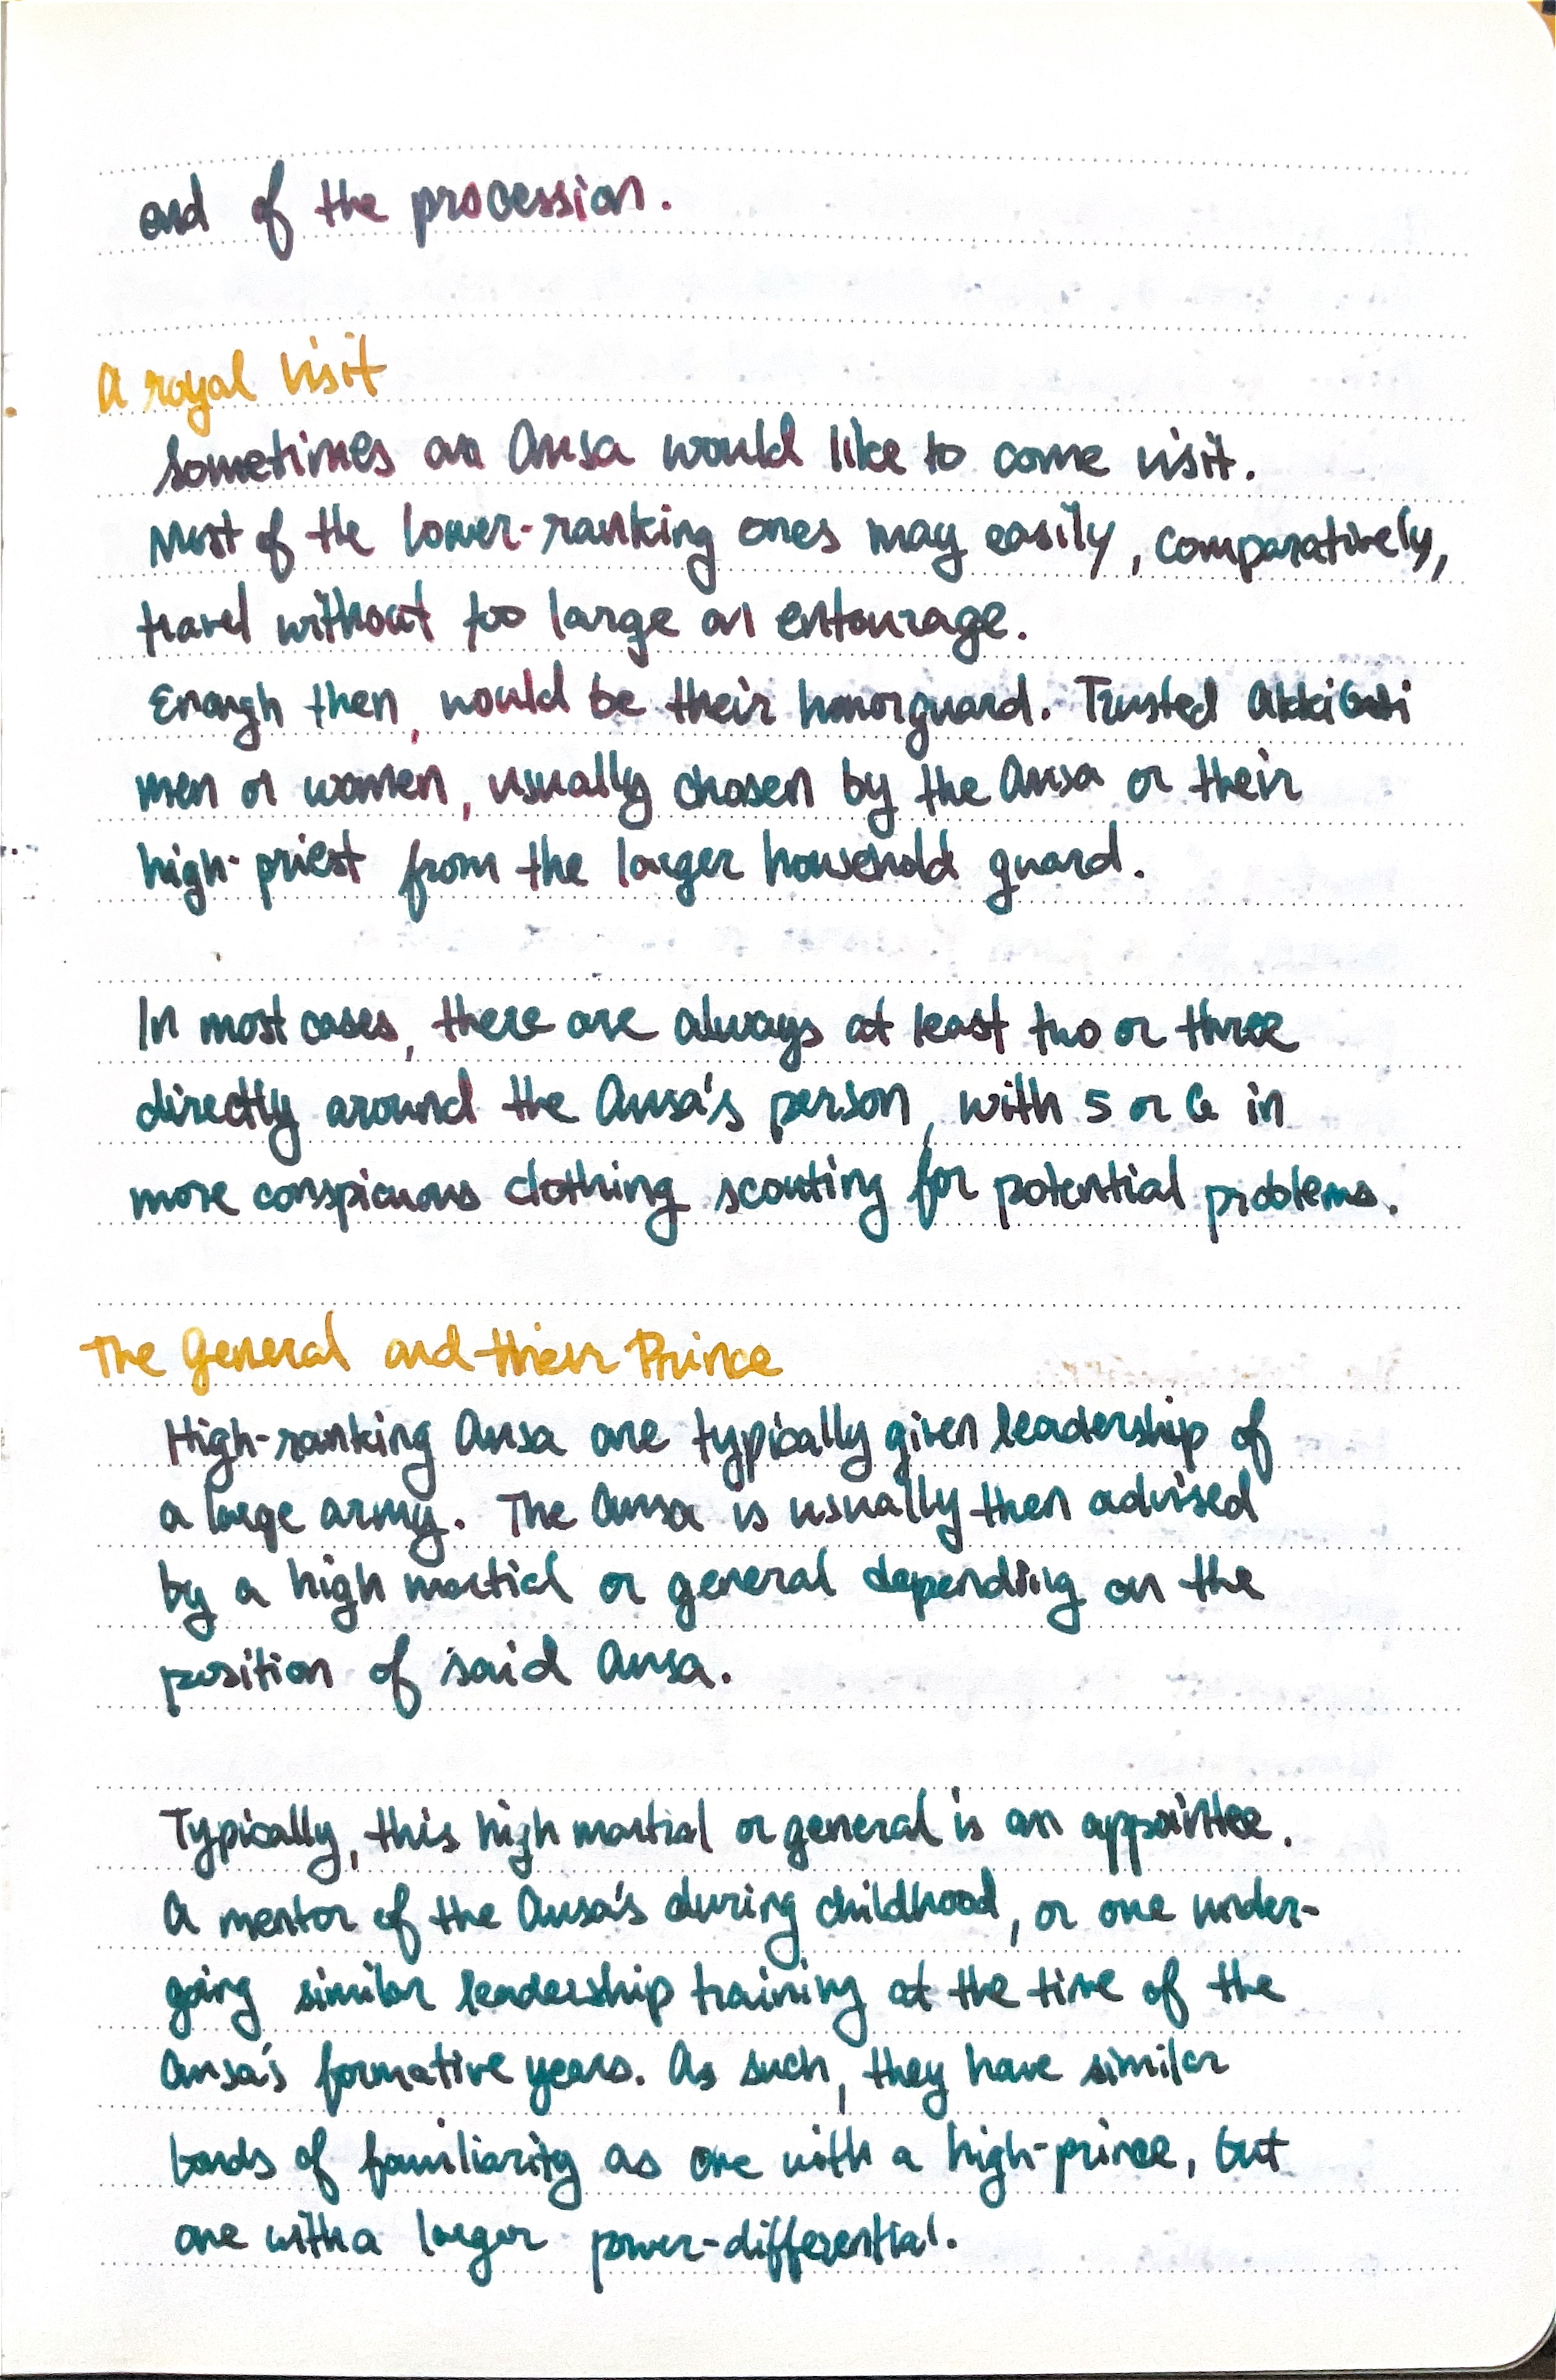 end of the procession.
A royal visit
Sometimes an Ansa would like to come visit.
Most of the lower-ranking ones may easily, comparatively,
travel without too large an entourage.
Enough then, would be their honorguard. Trusted
men or women, usually chosen by the Ansa or their
high-priest from the larger household guard.
In most cases, there are always at least two or three
directly around the Ansa's person, with 5 or 6 in
more conspicuous clothing scouting for potential problems.
The General and their Prince
High-ranking Ansa are typically given leadership of
a large army. The Ansa is usually then advised
by a high martial or general depending on the
position of said Ansa.
Typically, this high martial or general is an appointee.
A mentor of the Ansa's during childhood, or one under-
going similar leadership training at the time of the
Ansa's formative years. As such, they have similar
bonds of familiarity as one with a high-prince, but
one with a larger power-differential.